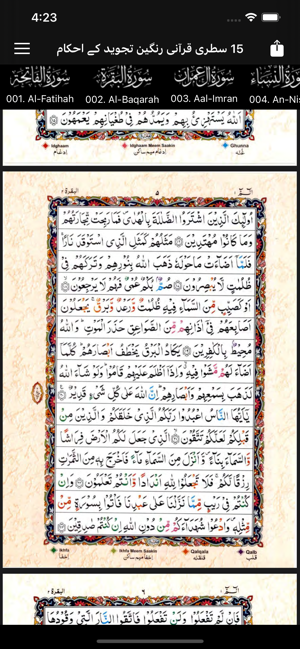 4:23
15 سطری قرآنی رنگین تجوید کے احکام
سُورَةُ الفَاتِحَة
سُورَةُ البَقَرَة
سُورَةُ آلِ عِمرَان
سُورَةُ النِّسَاء
001. Al-Fatihah
002. Al-Baqarah
003. Aal-Imran
004. An-Nis
اَللّٰهُ يَسْتَهْزِئُ بِهِمْ وَيَمُدُّهُمْ فِيْ طُغْيَانِهِمْ يَعْمَهُوْنَ ۝
Idghaam
Idghaam Meem Saakin
Ghunna
ادغام
ادغام میم ساکن
غنّہ
البقرة ٢
٥
الٓمّٓ ١
اُولٰٓئِكَ الَّذِيْنَ اشْتَرَوُا الضَّلٰلَةَ بِالْهُدٰى فَمَا رَبِحَتْ تِّجَارَتُهُمْ
وَمَا كَانُوْا مُهْتَدِيْنَ ۝ مَثَلُهُمْ كَمَثَلِ الَّذِى اسْتَوْقَدَ نَارًا
فَلَمَّآ اَضَآءَتْ مَا حَوْلَهٗ ذَهَبَ اللّٰهُ بِنُوْرِهِمْ وَتَرَكَهُمْ فِيْ
ظُلُمٰتٍ لَّا يُبْصِرُوْنَ ۝ صُمٌّۢ بُكْمٌ عُمْيٌ فَهُمْ لَا يَرْجِعُوْنَ ۝
اَوْ كَصَيِّبٍ مِّنَ السَّمَآءِ فِيْهِ ظُلُمٰتٌ وَّرَعْدٌ وَّبَرْقٌ يَجْعَلُوْنَ
اَصَابِعَهُمْ فِيْٓ اٰذَانِهِمْ مِّنَ الصَّوَاعِقِ حَذَرَ الْمَوْتِ وَاللّٰهُ
مُحِيْطٌۢ بِالْكٰفِرِيْنَ ۝ يَكَادُ الْبَرْقُ يَخْطَفُ اَبْصَارَهُمْ كُلَّمَآ
اَضَآءَ لَهُمْ مَّشَوْا فِيْهِ وَاِذَآ اَظْلَمَ عَلَيْهِمْ قَامُوْا وَلَوْ شَآءَ اللّٰهُ
لَذَهَبَ بِسَمْعِهِمْ وَاَبْصَارِهِمْ اِنَّ اللّٰهَ عَلٰى كُلِّ شَيْءٍ قَدِيْرٌ ۝
يٰٓاَيُّهَا النَّاسُ اعْبُدُوْا رَبَّكُمُ الَّذِيْ خَلَقَكُمْ وَالَّذِيْنَ مِنْ
قَبْلِكُمْ لَعَلَّكُمْ تَتَّقُوْنَ ۝ الَّذِيْ جَعَلَ لَكُمُ الْاَرْضَ فِرَاشًا
وَّالسَّمَآءَ بِنَآءً وَّاَنْزَلَ مِنَ السَّمَآءِ مَآءً فَاَخْرَجَ بِهٖ مِنَ الثَّمَرٰتِ
رِزْقًا لَّكُمْ فَلَا تَجْعَلُوْا لِلّٰهِ اَنْدَادًا وَّاَنْتُمْ تَعْلَمُوْنَ ۝ وَاِنْ
كُنْتُمْ فِيْ رَيْبٍ مِّمَّا نَزَّلْنَا عَلٰى عَبْدِنَا فَاْتُوْا بِسُوْرَةٍ مِّنْ
مِّثْلِهٖ وَادْعُوْا شُهَدَآءَكُمْ مِّنْ دُوْنِ اللّٰهِ اِنْ كُنْتُمْ صٰدِقِيْنَ ۝
Ikhfa
Ikhfa Meem Saakin
Qalqala
Qalb
اخفا
اخفا میم ساکن
قلقلہ
قلب
البقرة ٢
٦
الٓمّٓ ١
فَاِنْ لَّمْ تَفْعَلُوْا وَلَنْ تَفْعَلُوْا فَاتَّقُوا النَّارَ الَّتِيْ وَقُوْدُهَا